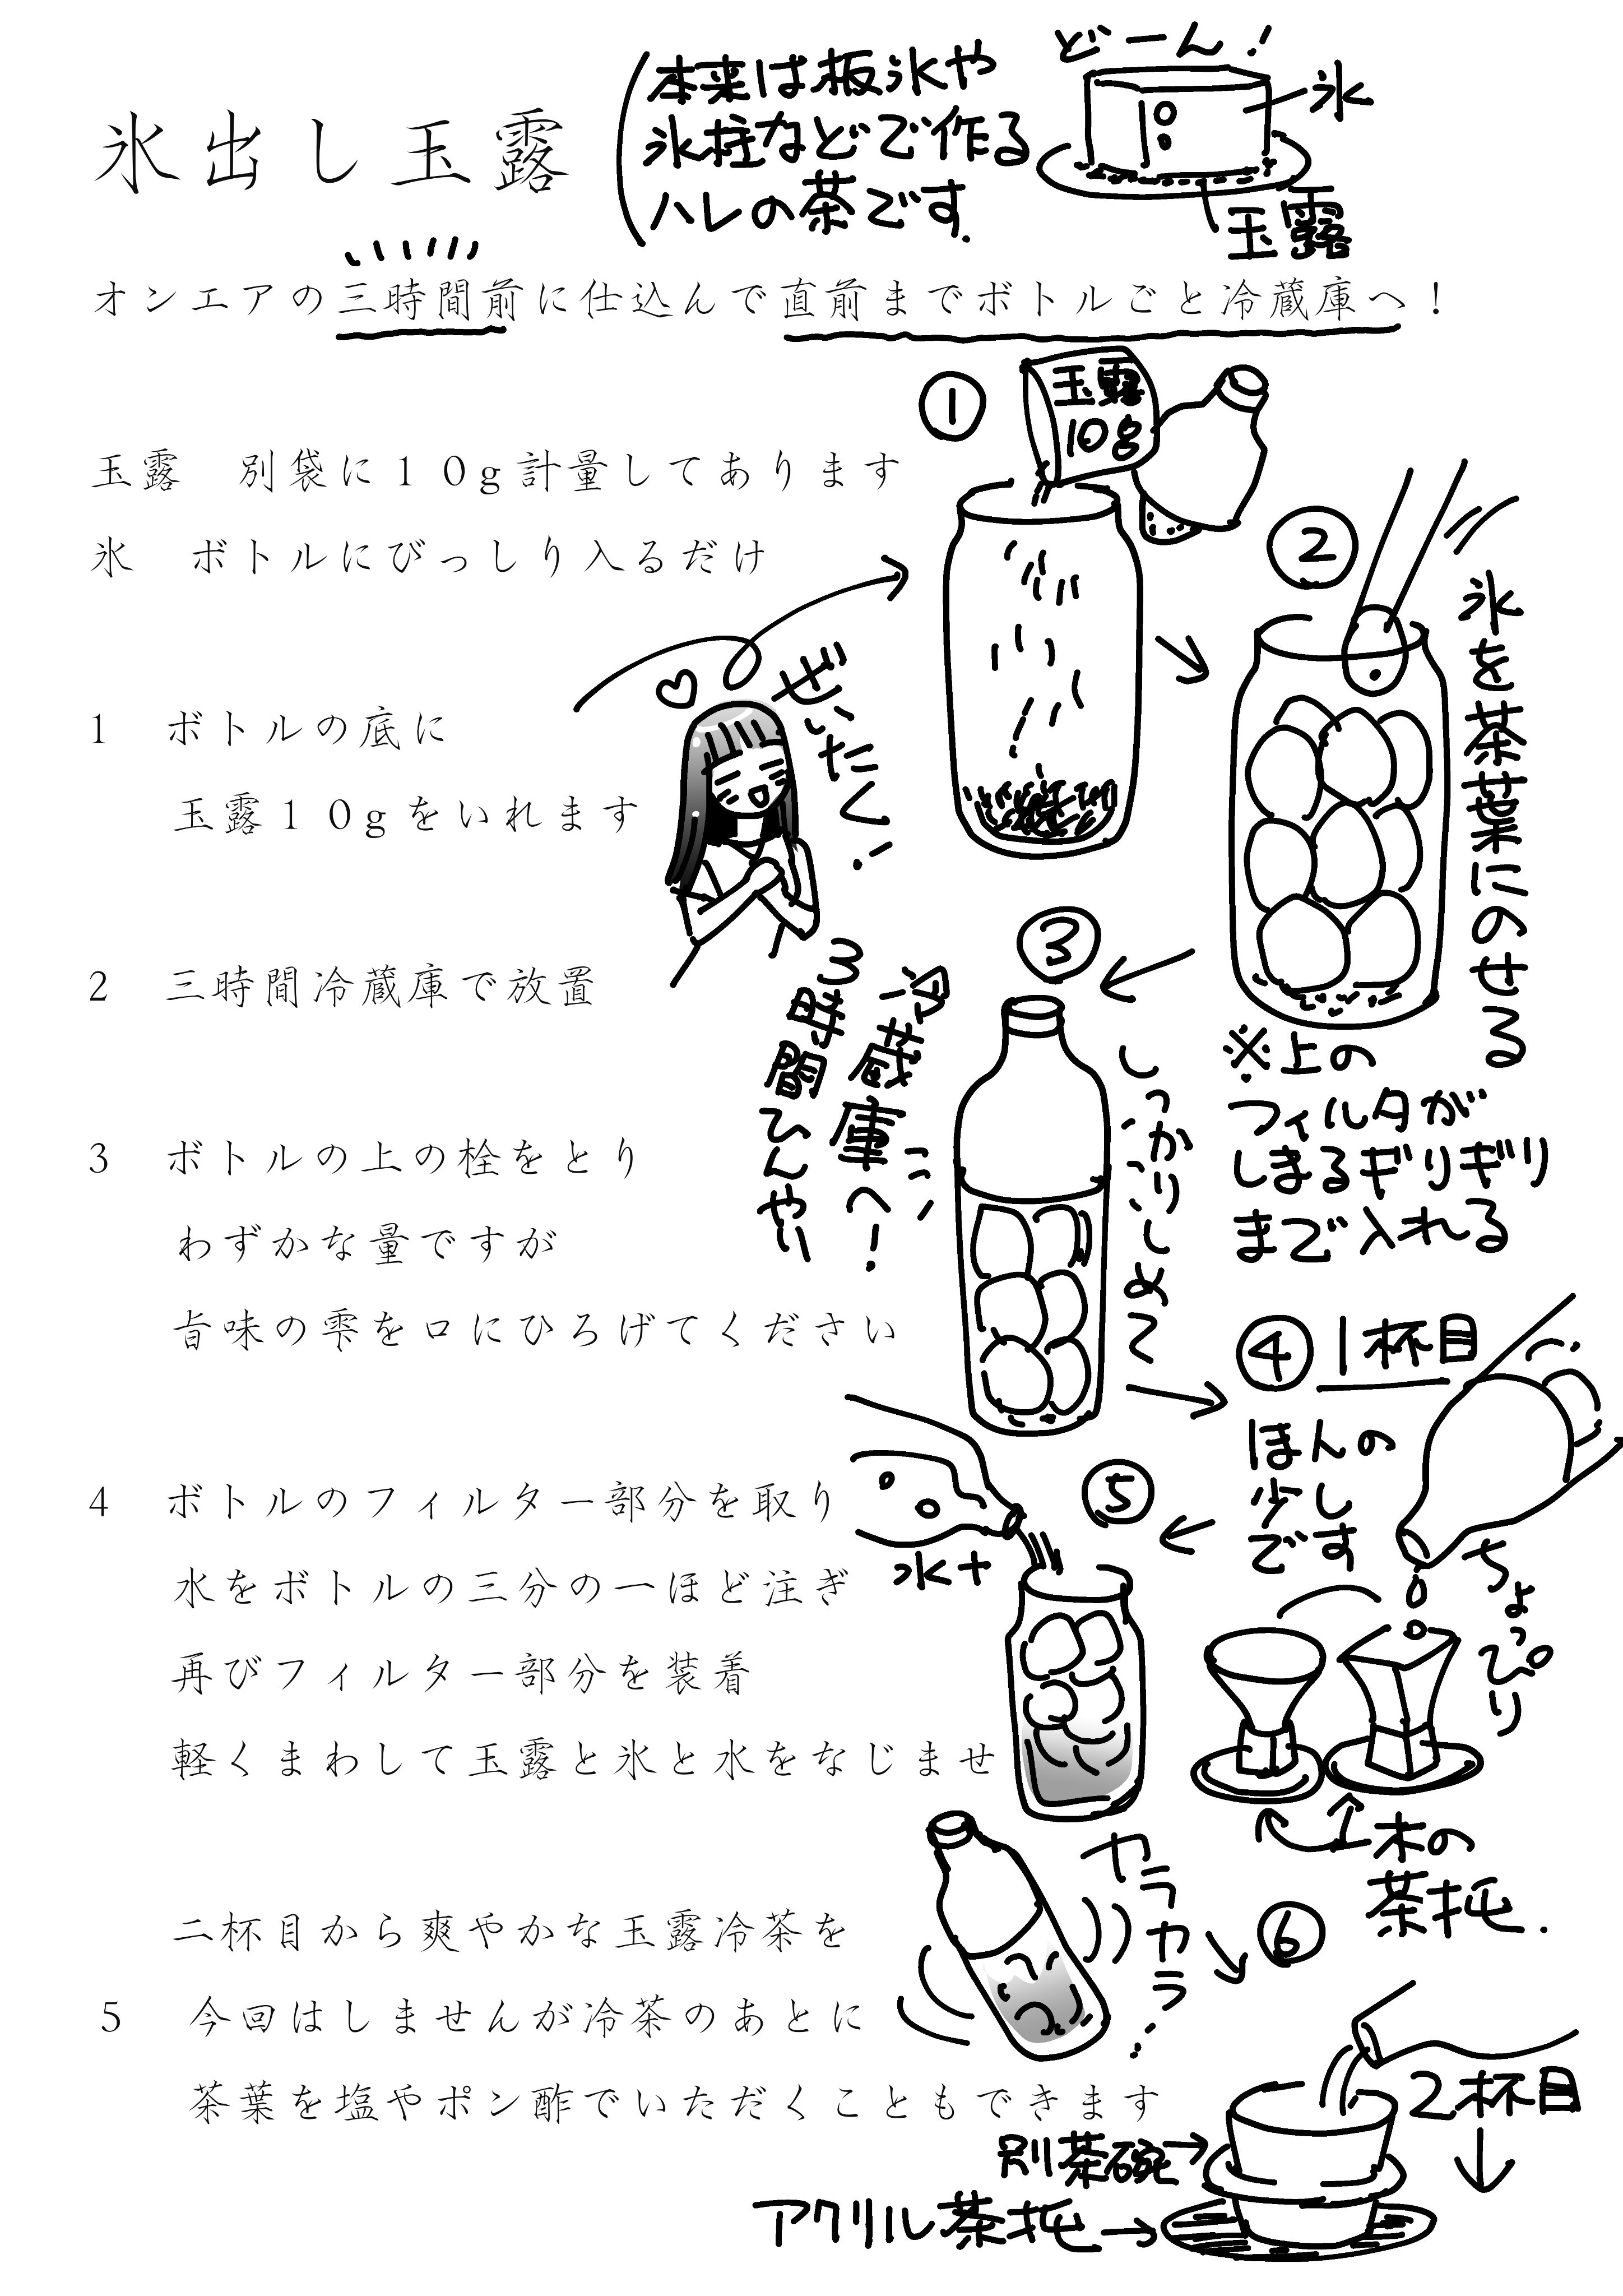 氷出し玉露
本来は板氷や
氷柱などで作る
ハレの茶です.
どーん!
氷
玉露
オンエアの三時間前に仕込んで直前までボトルごと冷蔵庫へ!
玉露 別袋に10g計量してあります
氷 ボトルにびっしり入るだけ
1 ボトルの底に
玉露10gをいれます
2 三時間冷蔵庫で放置
3 ボトルの上の栓をとり
わずかな量ですが
旨味の雫を口にひろげてください
4 ボトルのフィルター部分を取り
水をボトルの三分の一ほど注ぎ
再びフィルター部分を装着
軽くまわして玉露と氷と水をなじませ
二杯目から爽やかな玉露冷茶を
5 今回はしませんが冷茶のあとに
茶葉を塩やポン酢でいただくこともできます
①
玉露
10g
ぜいたく!
②
氷を茶葉にのせる
※上の
フィルタが
しまるギリギリ
まで入れる
③
しっかりしめて
冷蔵庫へ!
3時間ひんやり
④ 1杯目
ほんの
少し
です
ちょっぴり
木の
茶托.
⑤
水+
カラカラ…
⑥
2杯目
別茶碗→
アクリル茶托→